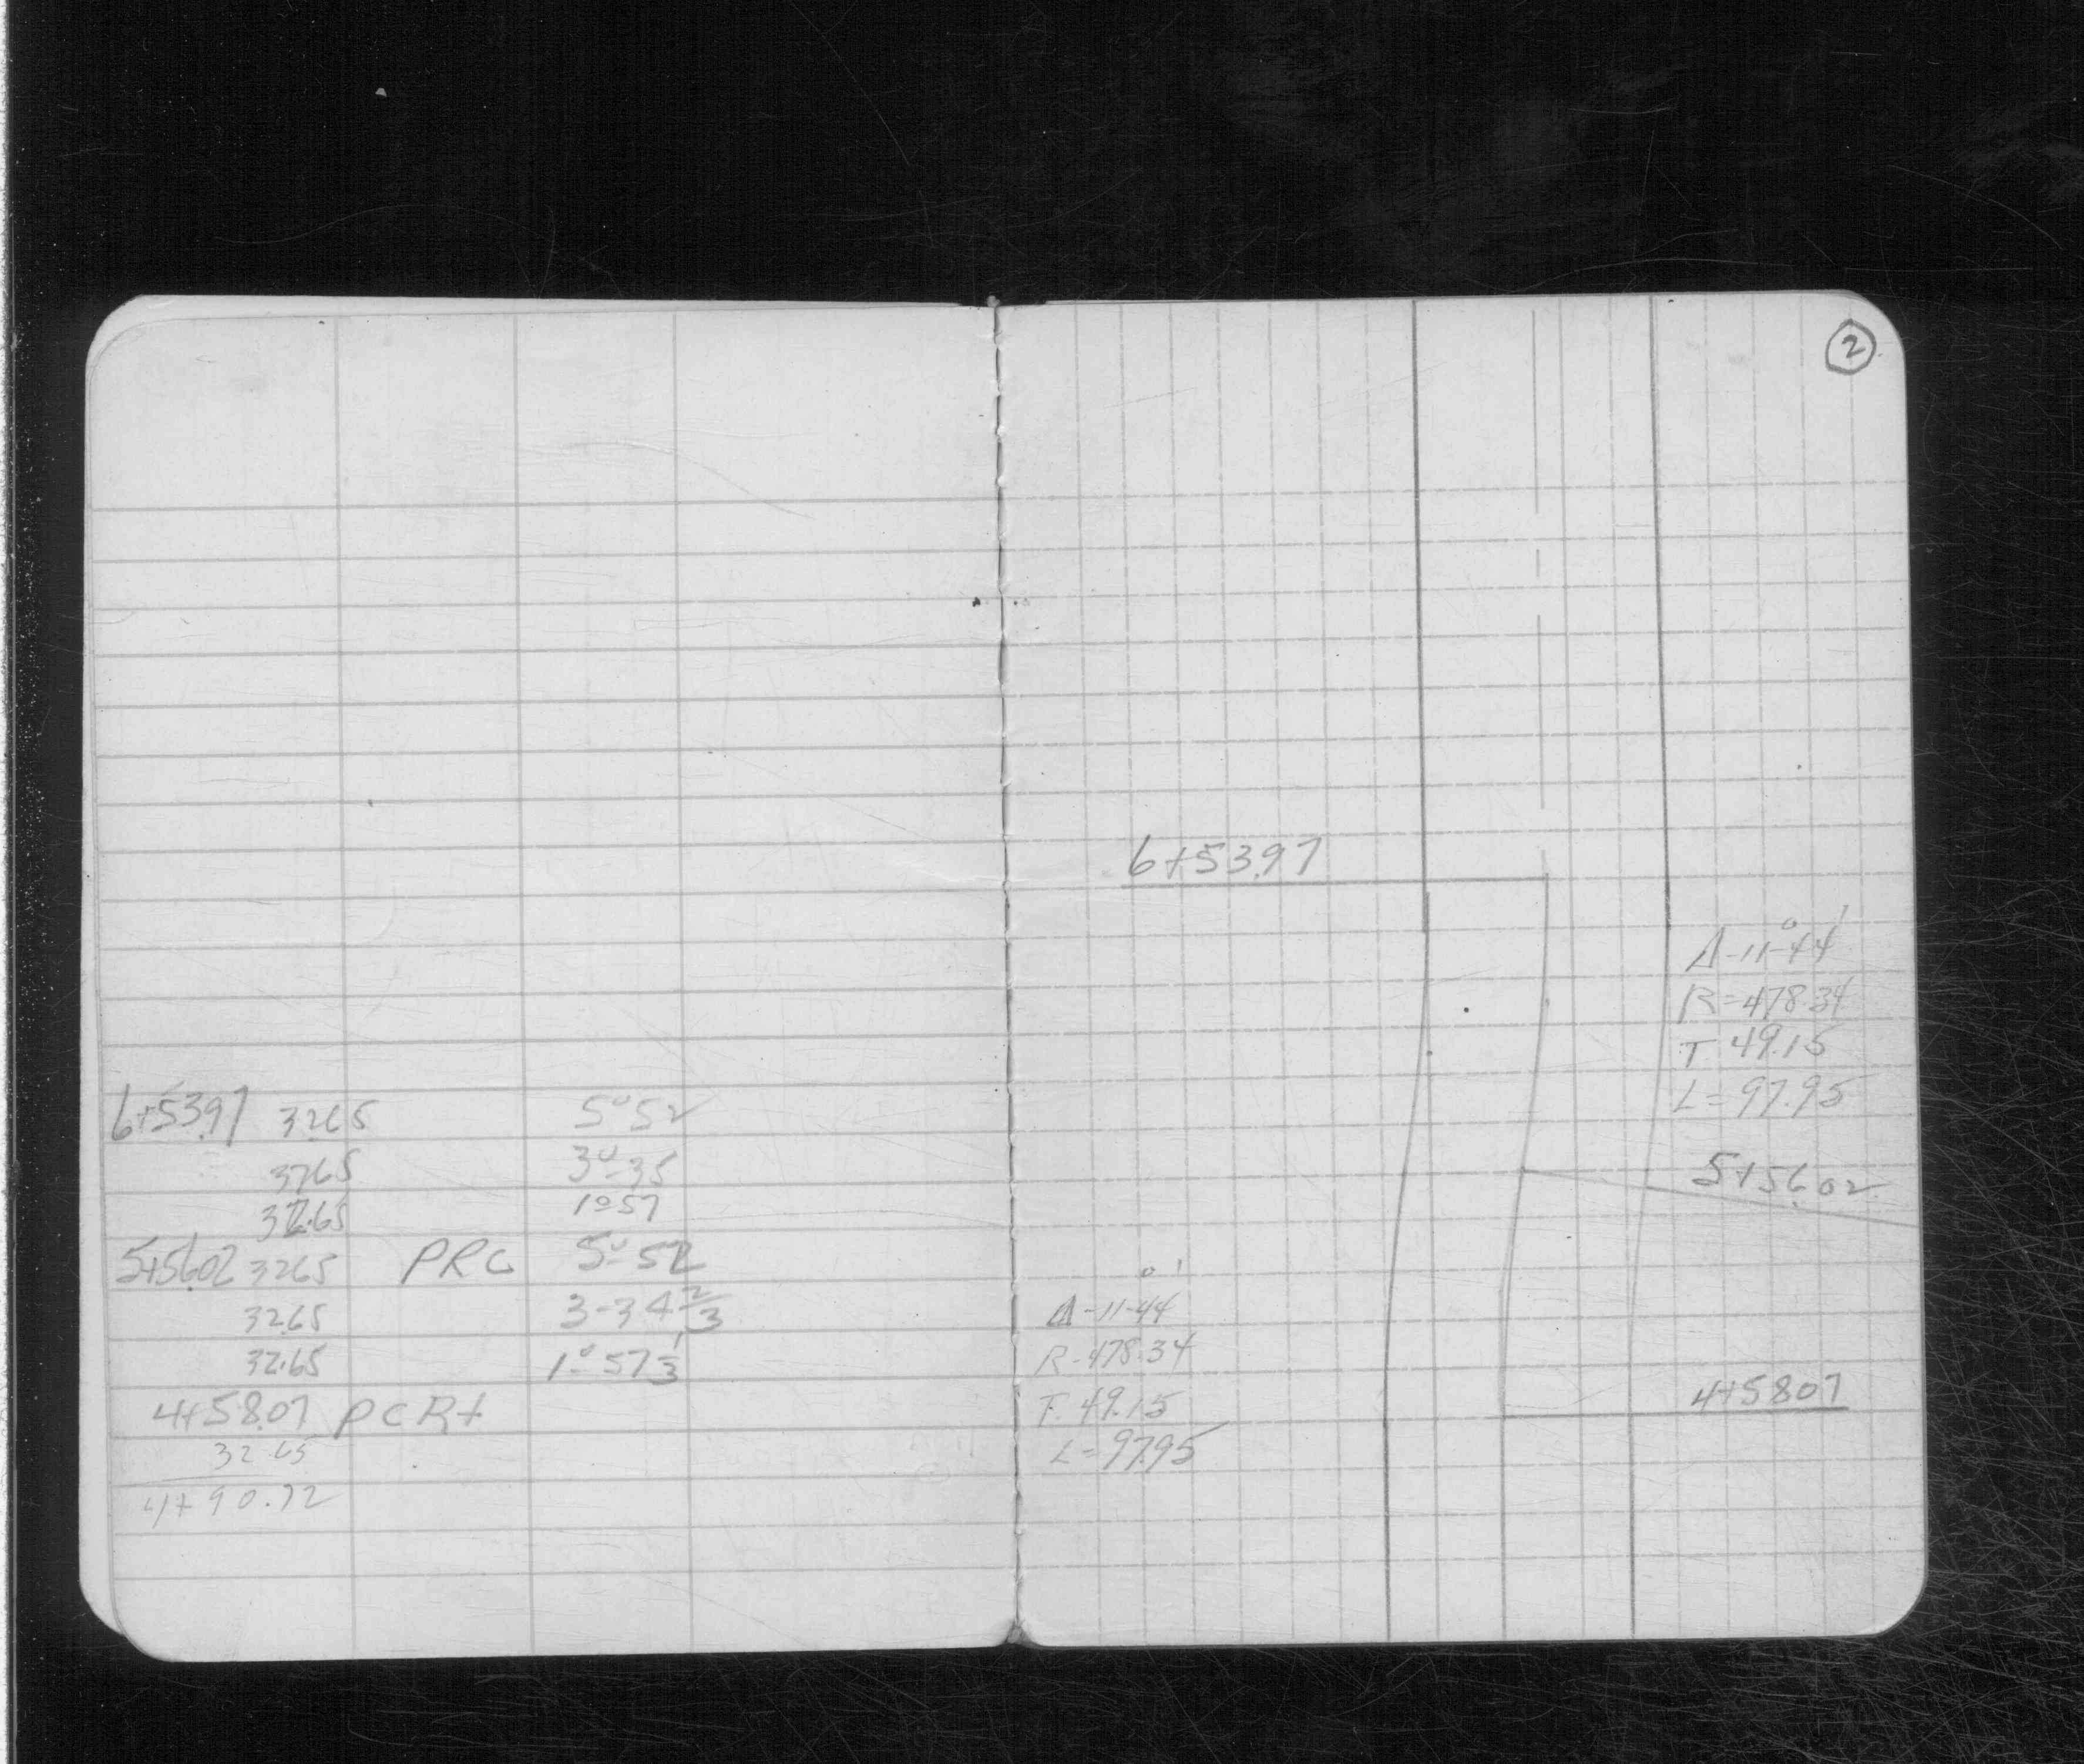 6+53.97 32.65 5°52
32.65 3°-35
32.65 1°57
5+56.02 32.65 PRC 5°-52
32.65 3-34 2/3
32.65 1°-57 1/3
4+58.07 PC Rt
32.65
4+90.72
2
6+53.97
Δ-11°-44'
R=478.34
T 49.15
L=97.95
5+56.02
Δ-11°-44'
R-478.34
T. 49.15
L=97.95
4+58.07